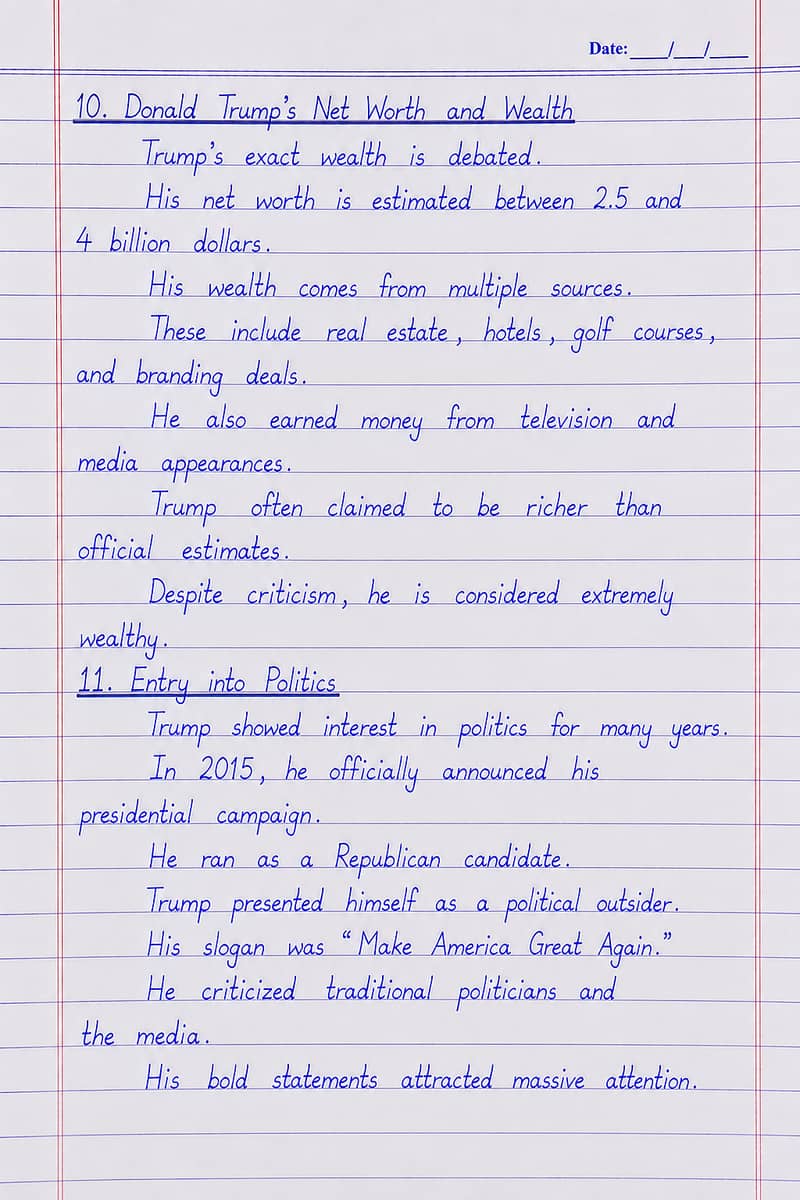 Date: ___/___/____
10. Donald Trump's Net Worth and Wealth
Trump's exact wealth is debated.
His net worth is estimated between 2.5 and
4 billion dollars.
His wealth comes from multiple sources.
These include real estate, hotels, golf courses,
and branding deals.
He also earned money from television and
media appearances.
Trump often claimed to be richer than
official estimates.
Despite criticism, he is considered extremely
wealthy.
11. Entry into Politics
Trump showed interest in politics for many years.
In 2015, he officially announced his
presidential campaign.
He ran as a Republican candidate.
Trump presented himself as a political outsider.
His slogan was “Make America Great Again.”
He criticized traditional politicians and
the media.
His bold statements attracted massive attention.